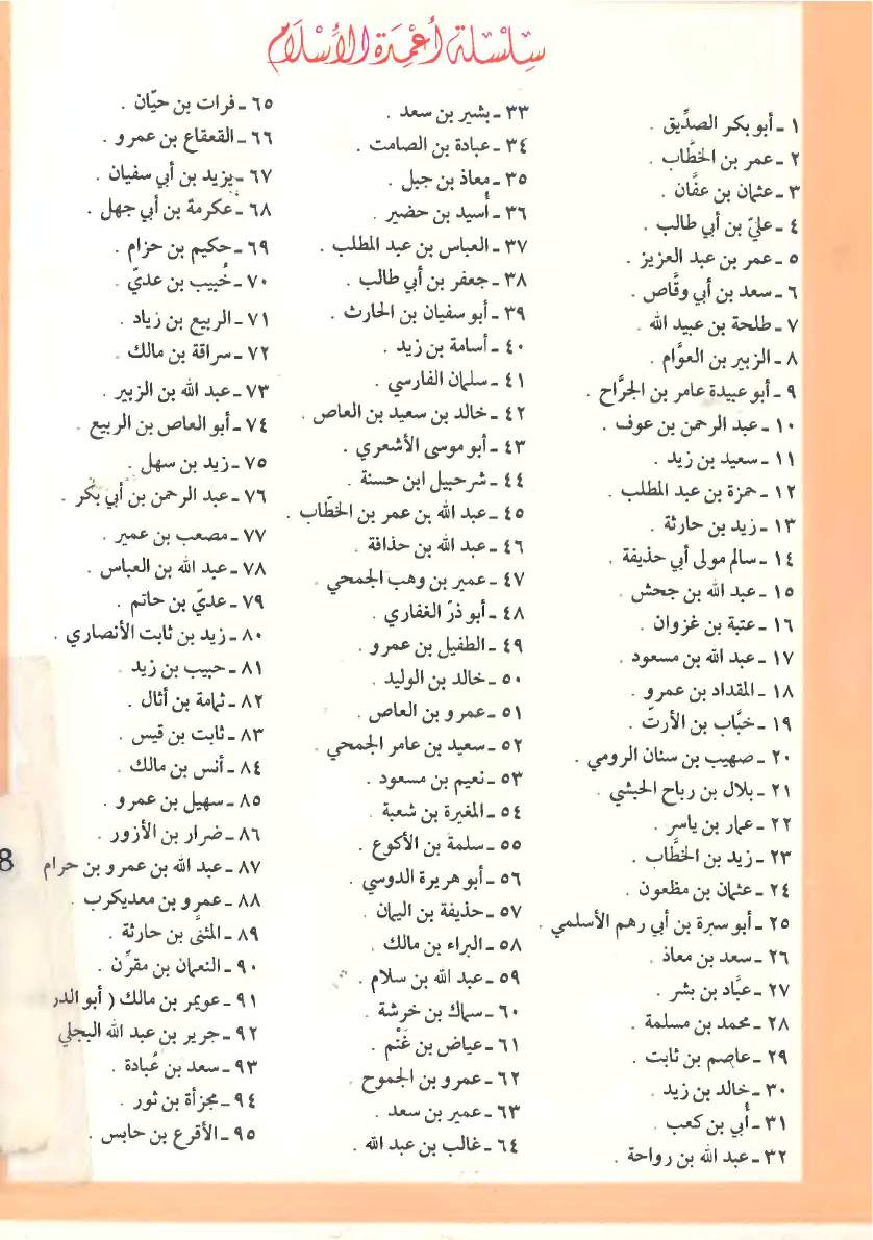 سِلْسِلَة أعْمِدَة الإسْلَام
١ - أبو بكر الصدِّيق .
٢ - عمر بن الخطَّاب .
٣ - عثمان بن عفَّان .
٤ - عليّ بن أبي طالب .
٥ - عمر بن عبد العزيز .
٦ - سعد بن أبي وقَّاص .
٧ - طلحة بن عبيد الله .
٨ - الزبير بن العوَّام .
٩ - أبو عبيدة عامر بن الجرَّاح .
١٠ - عبد الرحمن بن عوف .
١١ - سعيد بن زيد .
١٢ - حمزة بن عبد المطلب .
١٣ - زيد بن حارثة .
١٤ - سالم مولى أبي حذيفة .
١٥ - عبد الله بن جحش .
١٦ - عتبة بن غزوان .
١٧ - عبد الله بن مسعود .
١٨ - المقداد بن عمرو .
١٩ - خبَّاب بن الأرتّ .
٢٠ - صهيب بن سنان الرومي .
٢١ - بلال بن رباح الحبشي .
٢٢ - عمار بن ياسر .
٢٣ - زيد بن الخطَّاب .
٢٤ - عثمان بن مظعون .
٢٥ - أبو سبرة بن أبي رهم الأسلمي .
٢٦ - سعد بن معاذ .
٢٧ - عبَّاد بن بشر .
٢٨ - محمد بن مسلمة .
٢٩ - عاصم بن ثابت .
٣٠ - خالد بن زيد .
٣١ - أُبي بن كعب .
٣٢ - عبد الله بن رواحة .
٣٣ - بشير بن سعد .
٣٤ - عبادة بن الصامت .
٣٥ - معاذ بن جبل .
٣٦ - أُسيد بن حضير .
٣٧ - العباس بن عبد المطلب .
٣٨ - جعفر بن أبي طالب .
٣٩ - أبو سفيان بن الحارث .
٤٠ - أسامة بن زيد .
٤١ - سلمان الفارسي .
٤٢ - خالد بن سعيد بن العاص .
٤٣ - أبو موسى الأشعري .
٤٤ - شرحبيل ابن حسنة .
٤٥ - عبد الله بن عمر بن الخطَّاب .
٤٦ - عبد الله بن حذافة .
٤٧ - عمير بن وهب الجمحي .
٤٨ - أبو ذرّ الغفاري .
٤٩ - الطفيل بن عمرو .
٥٠ - خالد بن الوليد .
٥١ - عمرو بن العاص .
٥٢ - سعيد بن عامر الجمحي .
٥٣ - نعيم بن مسعود .
٥٤ - المغيرة بن شعبة .
٥٥ - سلمة بن الأكوع .
٥٦ - أبو هريرة الدوسي .
٥٧ - حذيفة بن اليمان .
٥٨ - البراء بن مالك .
٥٩ - عبد الله بن سلام .
٦٠ - سماك بن خرشة .
٦١ - عياض بن غَنْم .
٦٢ - عمرو بن الجموح .
٦٣ - عمير بن سعد .
٦٤ - غالب بن عبد الله .
٦٥ - فرات بن حيّان .
٦٦ - القعقاع بن عمرو .
٦٧ - يزيد بن أبي سفيان .
٦٨ - عكرمة بن أبي جهل .
٦٩ - حكيم بن حزام .
٧٠ - خُبيب بن عديّ .
٧١ - الربيع بن زياد .
٧٢ - سراقة بن مالك .
٧٣ - عبد الله بن الزبير .
٧٤ - أبو العاص بن الربيع .
٧٥ - زيد بن سهل .
٧٦ - عبد الرحمن بن أبي بكر .
٧٧ - مصعب بن عمير .
٧٨ - عبد الله بن العباس .
٧٩ - عديّ بن حاتم .
٨٠ - زيد بن ثابت الأنصاري .
٨١ - حبيب بن زيد .
٨٢ - ثمامة بن أثال .
٨٣ - ثابت بن قيس .
٨٤ - أنس بن مالك .
٨٥ - سهيل بن عمرو .
٨٦ - ضرار بن الأزور .
٨٧ - عبد الله بن عمرو بن حرام
٨٨ - عمرو بن معديكرب .
٨٩ - المثنَّى بن حارثة .
٩٠ - النعمان بن مقرِّن .
٩١ - عويمر بن مالك ( أبو الدر
٩٢ - جرير بن عبد الله البجلي
٩٣ - سعد بن عُبادة .
٩٤ - مجزأة بن ثور .
٩٥ - الأقرع بن حابس .
8